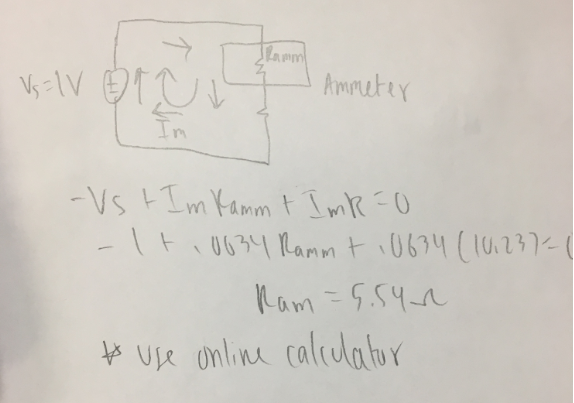 Ramm
Vs=1V
Ammeter
Im
-Vs + Im Ramm + Im R = 0
- 1 + .0634 Ramm + .0634 (10.23) = 0
Ram = 5.54 Ω
* use online calculator